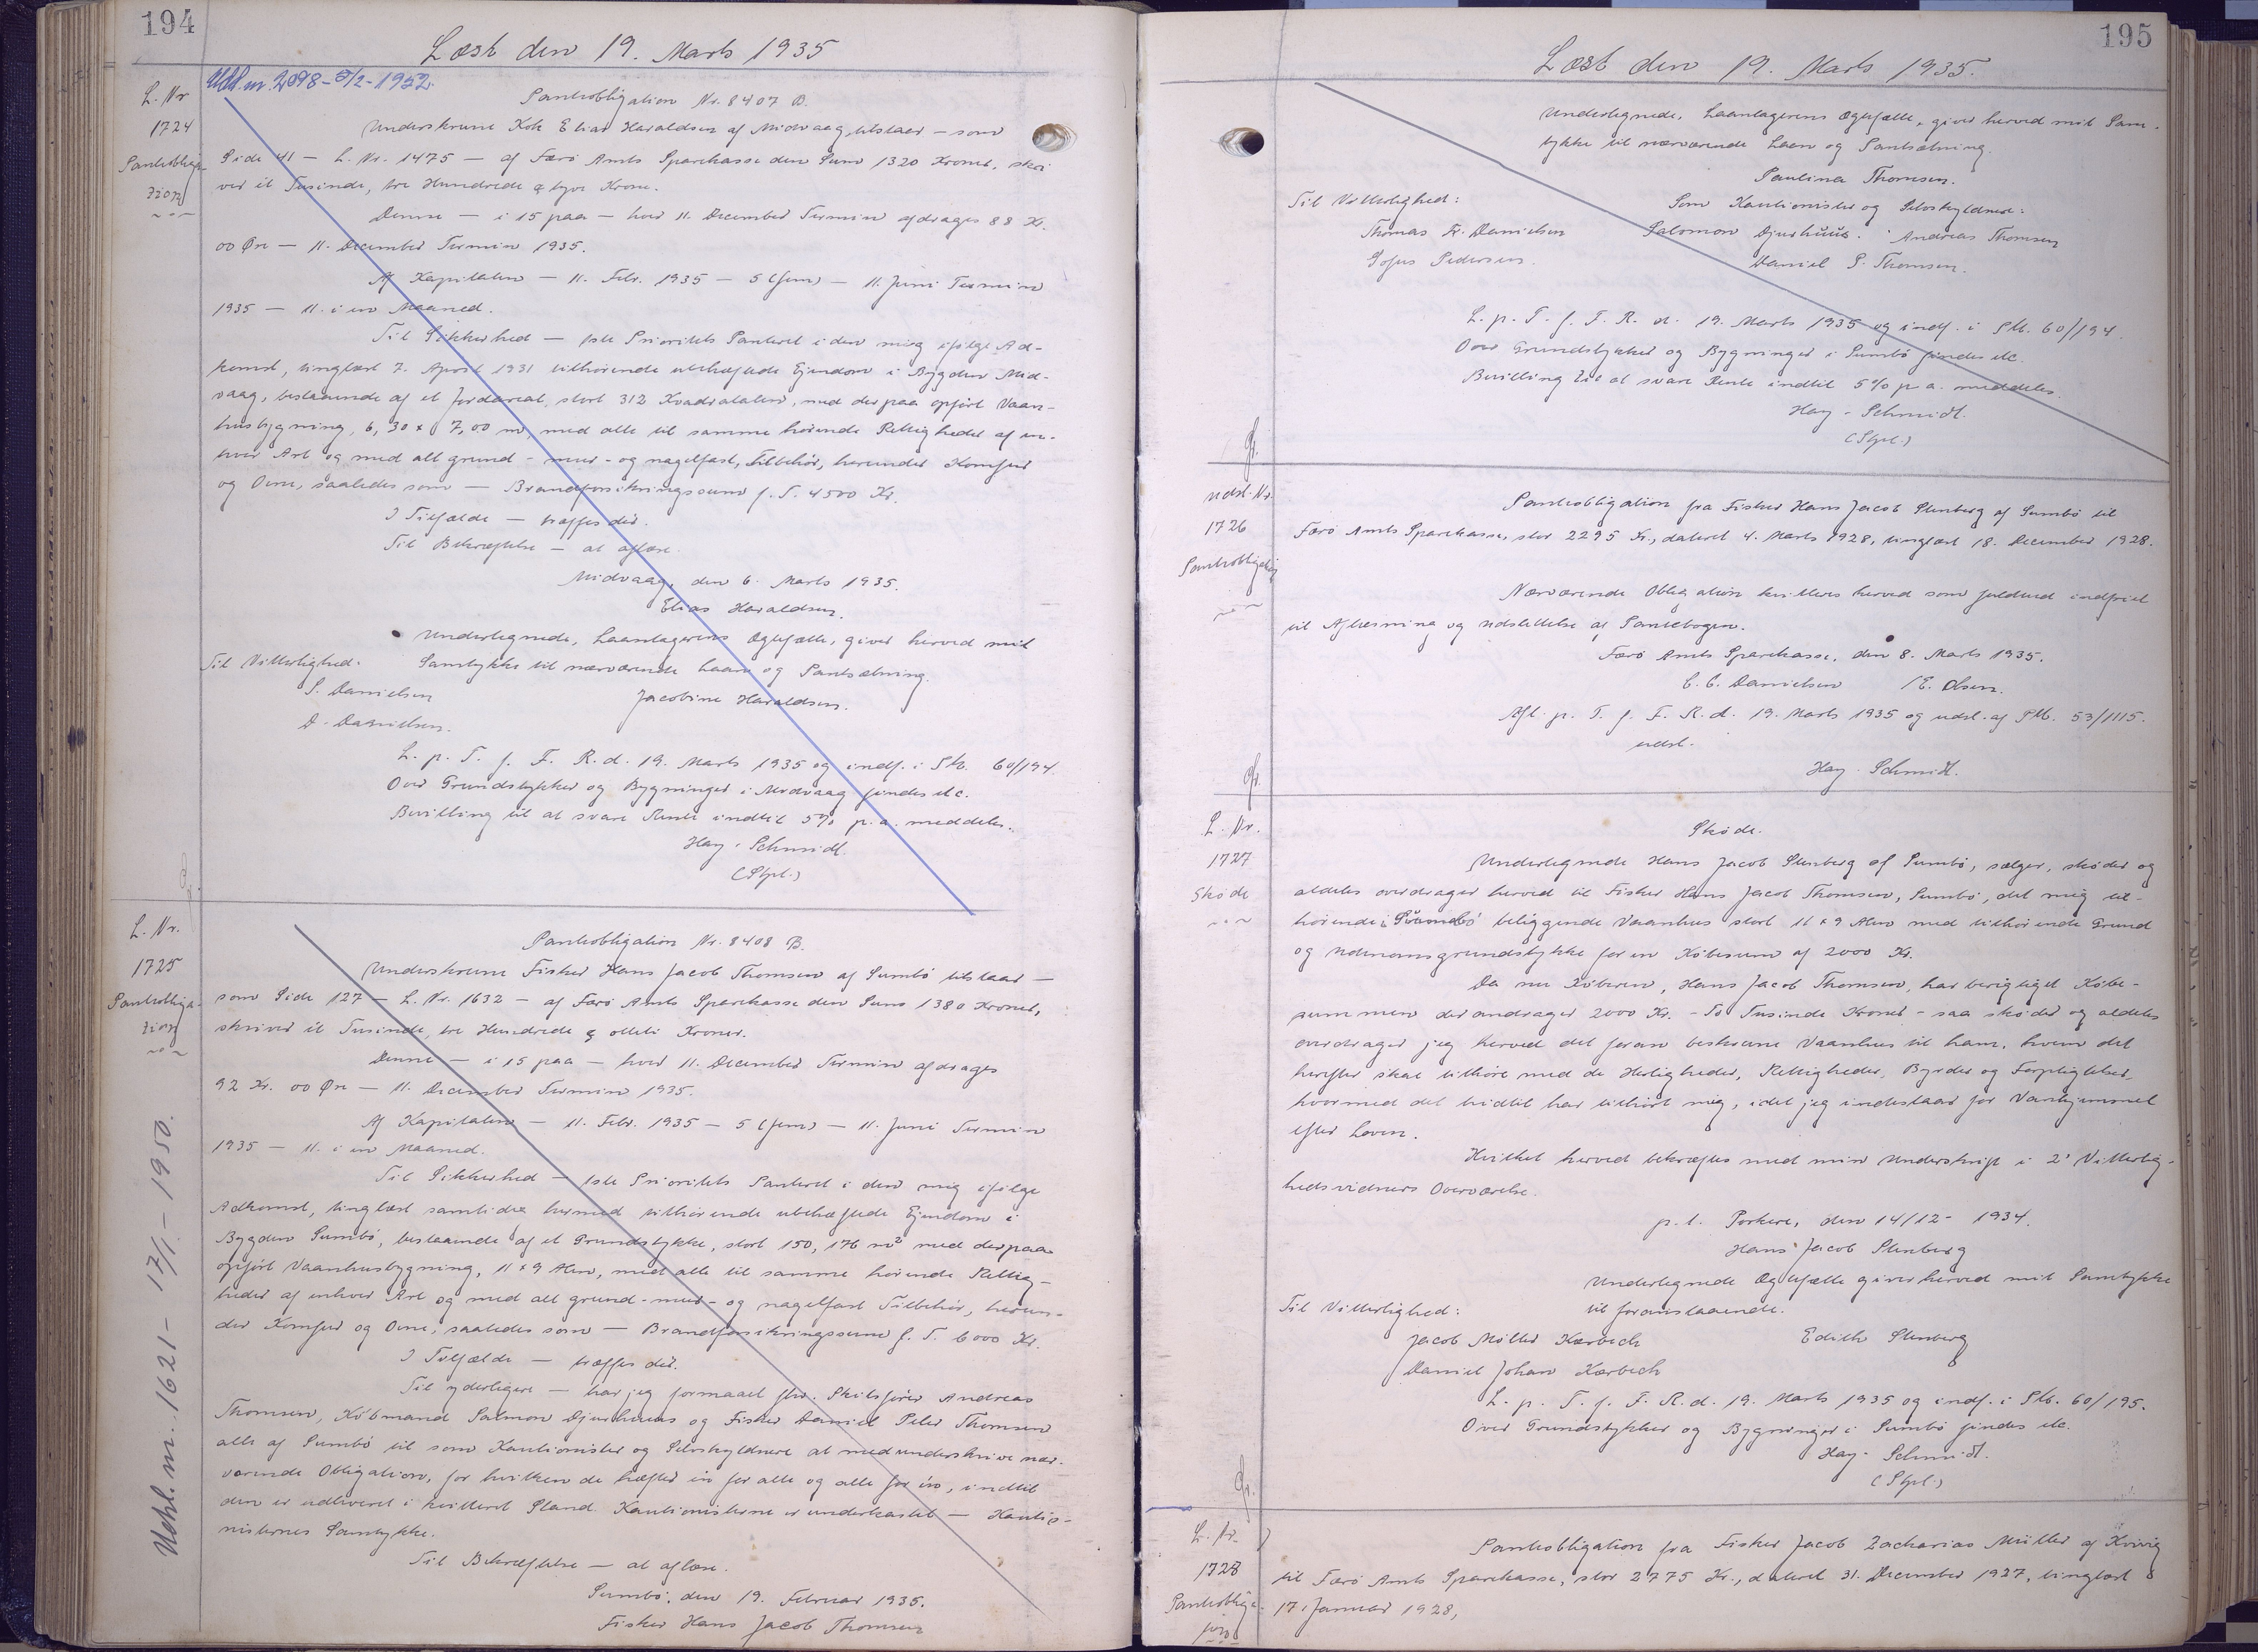 194
Læst den 19. Marts 1935
Udsl. nr. 2098 - 5/2 - 1952.
L. Nr
1724
Pantobliga-
tion
Pantobligation Nr. 8407 B.
Underskrevne Kok Elias Haraldsen af Midvaag tilstaar — som
Side 41 — L. Nr. 1475 — af Færö Amts Sparekasse den Sum 1320 Kroner, skri
ver et Tusinde, tre Hundrede & tyve Krone.
Denne — i 15 paa — hver 11. December Termin afdrages 88 Kr.
00 Øre — 11. December Termin 1935.
Af Kapitalen — 11. Febr. 1935 — 5 (fem) — 11. Juni Termin
1935 — 11. i en Maaned.
Til Sikkerhed — 1ste Prioritets Panteret i den mig ifølge Ad-
komst, tinglæst 7. April 1931 tilhørende ubehæftede Ejendom i Bygden Mid-
vaag, bestaaende af et Jordareal, stort 312 Kvadratalen, med derpaa opført Vaan-
husbygning, 6,30 x 7,00 m, med alle til samme hørende Rettigheder af en-
hver Art og med alt grund- mur- og nagelfast, Tilbehør, herunder Komfur
og Ovne, saaledes som — Brandforsikringssum f. T. 4500 Kr.
I Tilfælde — træffes der.
Til Bekræftelse — at aflæse.
Midvaag, den 6. Marts 1935.
Elias Haraldsen.
Undertegnede, Laantagerens Ægtefælle, giver herved mit
Til Vitterlighed: Samtykke til nærværende Laan og Pantsætning.
S. Danielsen
Jacobine Haraldsen.
D. Danielsen.
L. p. T. f. F. R. d. 19. Marts 1935 og indf. i Pb. 60/194.
Over Grundstykker og Bygninger i Midvaag findes etc.
Bevilling til at svare Rente indtil 5% p.a. meddeles.
Hay-Schmidt.
(Stpl.)
L. Nr.
1725
Pantobliga-
tion
Udsl. nr. 1621 - 17/1 - 1950.
Pantobligation Nr. 8408 B.
Underskrevne Fisker Hans Jacob Thomsen af Sumbö tilstaar —
som Side 127 — L. Nr. 1632 — af Færö Amts Sparekasse den Sum 1380 Kroner,
skriver et Tusinde, tre Hundrede & otteti Kroner.
Denne — i 15 paa — hver 11. December Termin afdrages
92 Kr. 00 Øre — 11. December Termin 1935.
Af Kapitalen — 11. Febr. 1935 — 5 (fem) — 11. Juni Termin
1935 — 11. i en Maaned.
Til Sikkerhed — 1ste Prioritets Panteret i den mig ifølge
Adkomst, tinglæst samtidig hermed tilhørende ubehæftede Ejendom i
Bygden Sumbö, bestaaende af et Grundstykke, stort 150,176 m² med derpaa
opført Vaanhusbygning, 11 x 9 Alen, med alle til samme hørende Rettig-
heder af enhver Art og med alt grund- mur- og nagelfast Tilbehør, herun-
der Komfur og Ovne, saaledes som — Brandforsikringssum f. T. 6000 Kr.
I Tilfælde — træffes der.
Til yderligere — har jeg formaaet Hr. Skibsfører Andreas
Thomsen, Købmand Salmon Djurhuus og Fisker Daniel Peter Thomsen
alle af Sumbö til som Kautionister og Selvskyldnere at medunderskrive nær-
værende Obligation, for hvilken de hæfter en for alle og alle for én, indtil
den er udleveret i kvitteret Stand. Kautionisterne er underkastet — Kautio-
nisternes Samtykke.
Til Bekræftelse — at aflæse.
Sumbö, den 19. Februar 1935.
Fisker Hans Jacob Thomsen
195
Læst den 19. Marts 1935.
Undertegnede, Laantagerens Ægtefælle, giver herved mit Sam-
tykke til nærværende Laan og Pantsætning.
Paulina Thomsen.
Til Vitterlighed: Som Kautionister og Selvskyldnere:
Thomas Fr. Danielsen Salomon Djurhuus. Andreas Thomsen
Sofus Pedersen. Daniel P. Thomsen.
L. p. T. f. F. R. d. 19. Marts 1935 og indf. i Pb. 60/194.
Over Grundstykker og Bygninger i Sumbö findes etc.
Bevilling til at svare Rente indtil 5% p.a. meddeles.
Hay-Schmidt.
(Stpl.)
Udsl. Nr.
1726
Pantobligation
Pantobligation fra Fisker Hans Jacob Stenberg af Sumbö til
Færö Amts Sparekasse, stor 2295 Kr., dateret 4. Marts 1928, tinglæst 18. December 1928.
Nærværende Obligation kvitteres herved som fuldtud indfriet
til Aflæsning og Udslettelse af Pantebogen.
Færö Amts Sparekasse, den 8. Marts 1935.
C. C. Danielsen /E. Olsen.
Afl. p. T. f. F. R. d. 19. Marts 1935 og udsl. af Pb. 53/1115.
udsl.
Hay-Schmidt.
L. Nr.
1727
Skøde
Skøde.
Undertegnede Hans Jacob Stenberg af Sumbö, sælger, skøder og
aldeles overdrager herved til Fisker Hans Jacob Thomsen, Sumbö, det mig til-
hørende i Sumbö beliggende Vaanhus stort 11 x 9 Alen med tilhørende Grund
og Udmarksgrundstykke for en Købesum af 2000 Kr.
Da nu Køberen, Hans Jacob Thomsen, har berigtiget Købe-
summen der andrager 2000 Kr. - To Tusinde Kroner - saa skøder og aldeles
overdrager jeg herved det foran beskrevne Vaanhus til ham, hvem det
herefter skal tilhøre med de Herligheder, Rettigheder, Byrder og Forpligtelser,
hvormed det hidtil har tilhørt mig, idet jeg indestaar for Vanhjemmel
efter Loven.
Hvilket herved bekræftes med min Underskrift i 2' Vitterlig-
hedsvidners Overværelse.
p.t. Porkere, den 14/12 - 1934.
Hans Jacob Stenberg
Undertegnede Ægtefælle giver herved mit Samtykke
Til Vitterlighed: til foranstaaende.
Jacob Møller Kærbech Edith Stenberg
Daniel Johan Kærbech
L. p. T. f. F. R. d. 19. Marts 1935 og indf. i Pb. 60/195.
Over Grundstykker og Bygninger i Sumbö findes etc.
Hay-Schmidt.
(Stpl.)
L. Nr.
1728
Pantobliga-
tion
Pantobligation fra Fisker Jacob Zacharias Müller af Kvivig
til Færö Amts Sparekasse, stor 2775 Kr., dateret 31. December 1927, tinglæst
17. Januar 1928,